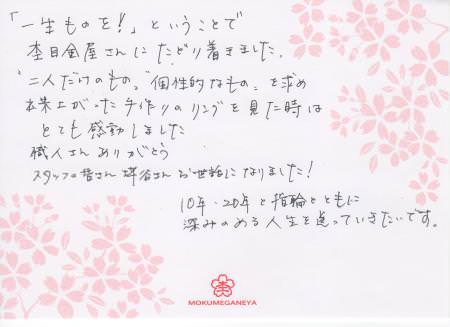 「一生ものを!」ということで
杢目金屋さんにたどり着きました。
“二人だけのもの”“個性的なもの”を求め
出来上がった手作りのリングを見た時は
とても感動しました
職人さんありがとう
スタッフの皆さん 坪谷さん お世話になりました!
10年・20年と指輪とともに
深みのある人生を送っていきたいです。
杢
MOKUMEGANEYA